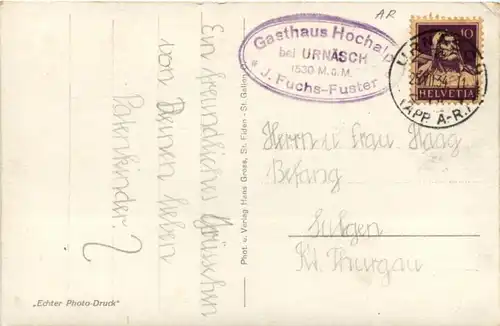 AR
Gasthaus Hochalp
bei URNÄSCH
1530 M.ü.M.
* J. Fuchs-Fuster
10
HELVETIA
(APP. A-R.)
Ein freundliches Grüsschen
von Deinen lieben
Patenkinder.
Phot. u. Verlag Hans Gross, St. Fiden - St. Gallen
Herrn u Frau Haag
Befang
Sulgen
Kt. Thurgau
„Echter Photo-Druck"